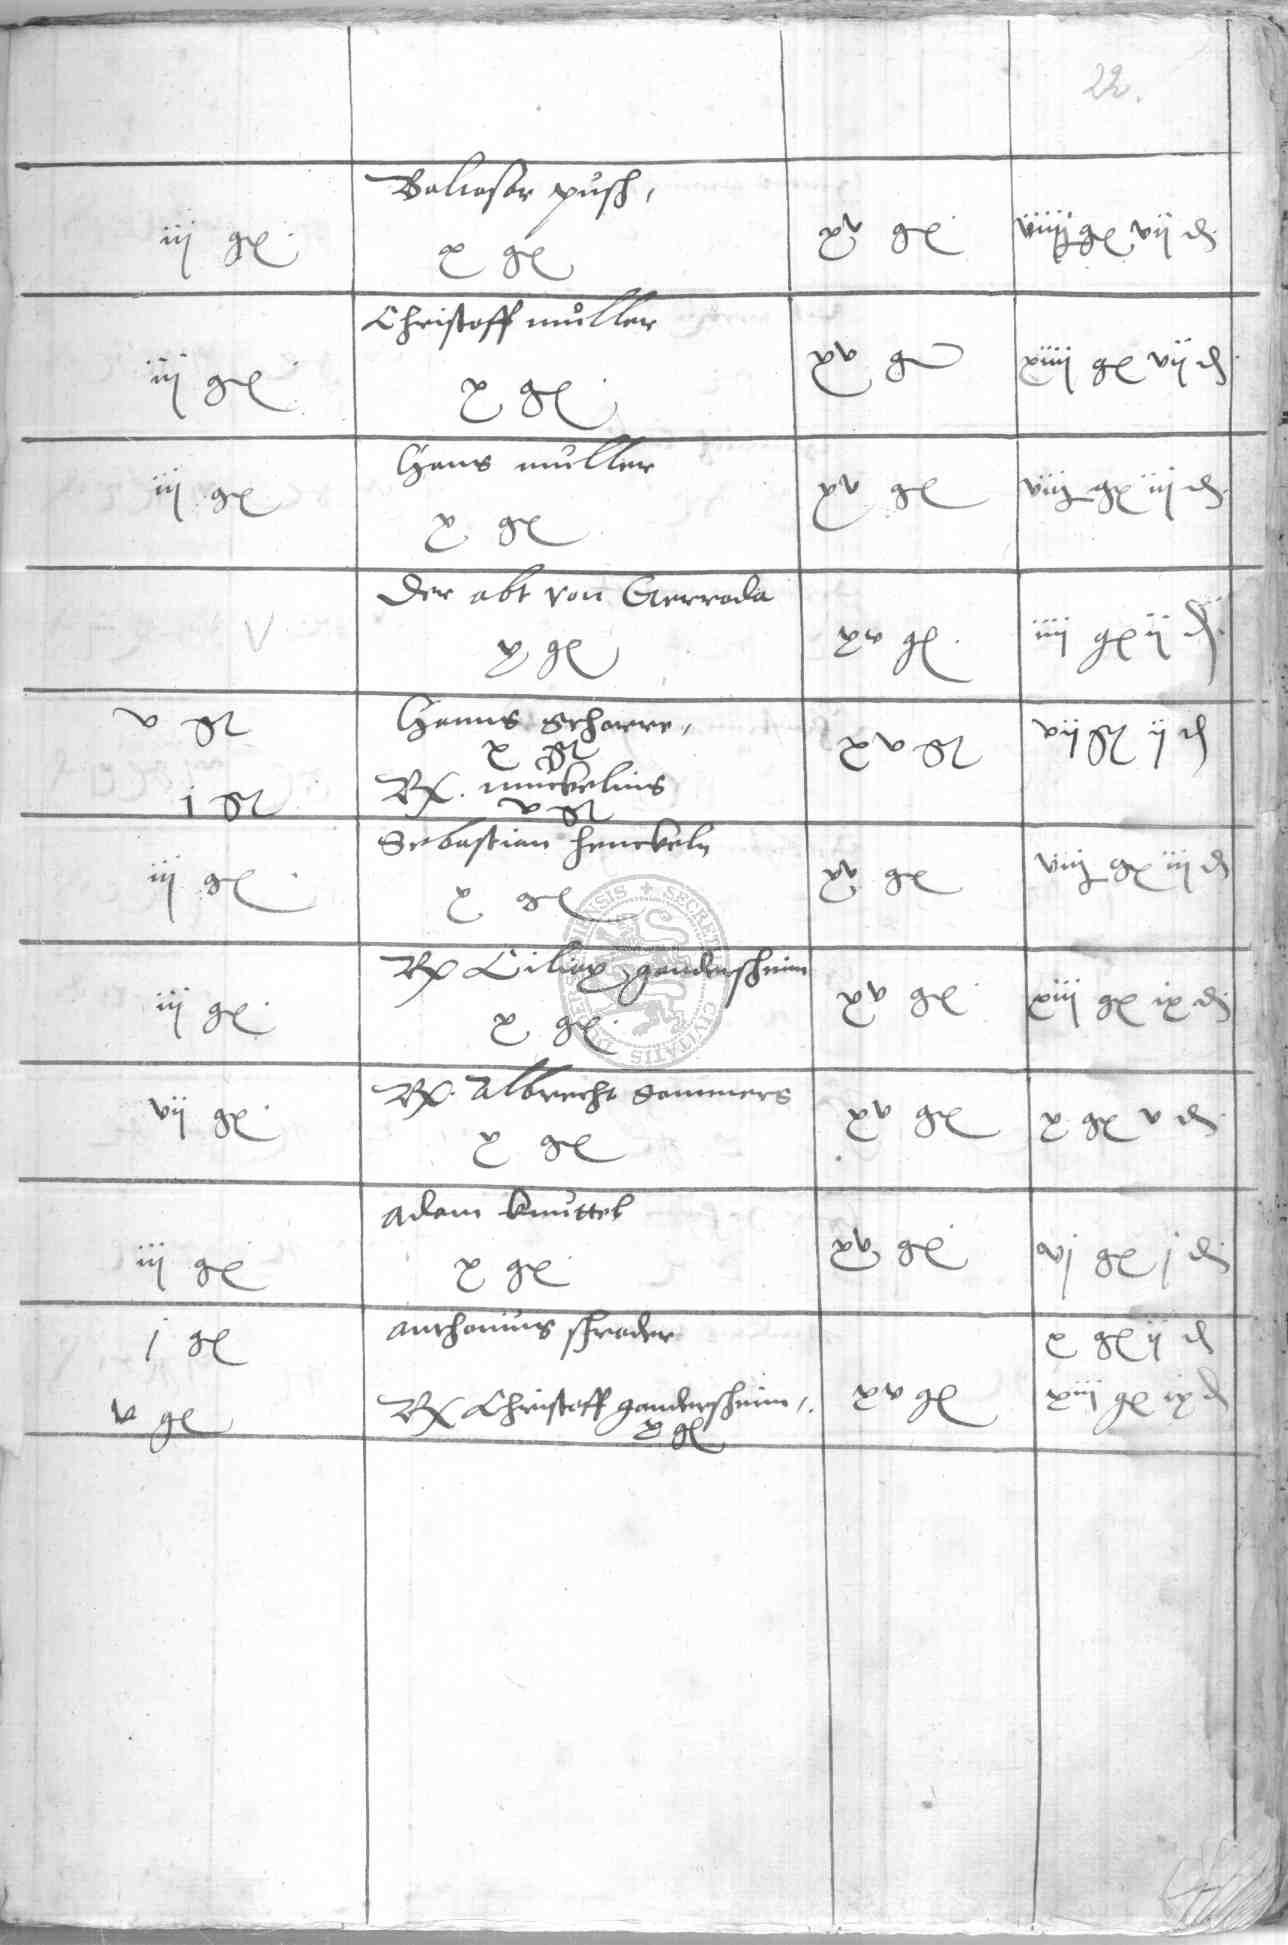 22.
Baltasar pusch,
iij gℓ x gℓ xv gℓ viiij gℓ vij d
Christoff můller
iij gℓ x gℓ xv g xiiij gℓ vij d
Hans müller
iij gℓ x gℓ xv gℓ viij gℓ iij d
Der abt von Gerroda
V x gℓ xv gℓ iiij gℓ ij d
v gℓ Hanns Scharre, xv gℓ vij gℓ ij d
x gℓ
Rx. munckelius
j gℓ v gℓ
Sebastian henckeln
iij gℓ x gℓ xv gℓ viij gℓ iij d
Rx Ciliax gandersheim
iij gℓ x gℓ xv gℓ xiij gℓ ix d
Rx. Albrecht Sommers
vij gℓ x gℓ xv gℓ x gℓ v d
Adam knüttel
iij gℓ x gℓ xv gℓ vj gℓ j d
j gℓ Anthonius schrader x gℓ ij d
v gℓ Rx Christoff gandersheim, xv gℓ xiij gℓ ix d
x gℓ
SECRET CIVITATIS